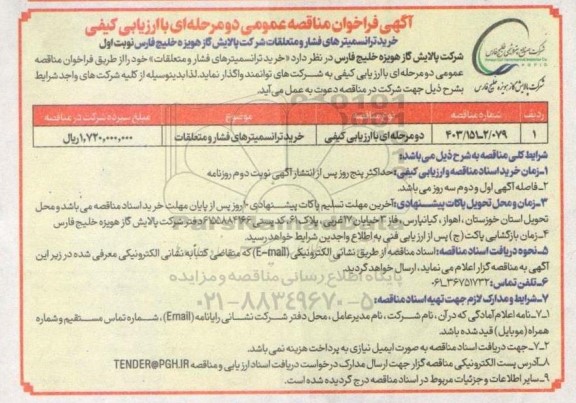 آگهی فراخوان مناقصه عمومی دو مرحله‌ای با ارزیابی کیفی
خرید ترانسمیترهای فشار و متعلقات شرکت پالایش گاز هویزه خلیج فارس نوبت اول
شرکت پالایش گاز هویزه خلیج فارس
شرکت پالایش گاز هویزه خلیج فارس در نظر دارد «خرید ترانسمیترهای فشار و متعلقات» خود را از طریق فراخوان مناقصه
عمومی دو مرحله‌ای با ارزیابی کیفی به شرکت‌های توانمند واگذار نماید. لذا بدینوسیله از کلیه شرکت‌های واجد شرایط
بشرح ذیل جهت شرکت در مناقصه دعوت به عمل می‌آید.
ردیف شماره مناقصه نوع مناقصه موضوع مبلغ سپرده شرکت در مناقصه
۱ ۴۰۳/۱۵۱ـ۲/۰۷۹ دو مرحله‌ای با ارزیابی کیفی خرید ترانسمیترهای فشار و متعلقات ۱,۷۲۰,۰۰۰,۰۰۰ ریال
شرایط کلی مناقصه به شرح ذیل می‌باشد:
۱ـ زمان خرید اسناد مناقصه و ارزیابی کیفی: حداکثر پنج روز پس از انتشار آگهی نوبت دوم روزنامه
۲ـ فاصله آگهی اول و دوم سه روز می باشد.
۳ـ زمان و محل تحویل پاکات پیشنهادی: آخرین مهلت تسلیم پاکات پیشنهادی ۱۰ روز پس از پایان مهلت خرید اسناد مناقصه می باشد و محل
تحویل استان خوزستان، اهواز، کیانپارس، فاز ۳ خیابان ۱۷ غربی، پلاک ۶۱، کدپستی ۶۱۵۵۸۸۴۴۶۶ دفتر شرکت پالایش گاز هویزه خلیج فارس
۴ـ زمان بازگشایی پاکت (ج) پس از ارزیابی فنی به اطلاع واجدین شرایط خواهد رسید.
۵ـ نحوه دریافت اسناد مناقصه: اسناد مناقصه از طریق نشانی الکترونیکی (E-mail) که متقاضی کتبا به نشانی الکترونیکی معرفی شده در زیر این
آگهی به مناقصه گزار اعلام می نماید، ارسال خواهد گردید.
۶ـ تلفن تماس: ۳۶۷۵۱۷۳۲ـ۰۶۱
۷ـ شرایط و مدارک لازم جهت تهیه اسناد مناقصه:
۱ـ۷ـ نامه اعلام آمادگی که در آن، نام شرکت، نام مدیرعامل، محل دفتر شرکت نشانی رایانامه (Email)، شماره تماس مستقیم و شماره
همراه (موبایل) قید شده باشد.
۲ـ۷ـ جهت دریافت اسناد مناقصه به صورت ایمیل نیازی به پرداخت هزینه نمی باشد.
۸ـ آدرس پست الکترونیکی مناقصه گزار جهت ارسال مدارک درخواست دریافت اسناد ارزیابی و مناقصه TENDER@PGH.IR
۹ـ سایر اطلاعات و جزئیات مربوط در اسناد مناقصه درج گردیده است.
پایگاه اطلاع رسانی مناقصه و مزایده
۰۲۱-۸۸۳۴۹۶۷۰-۵